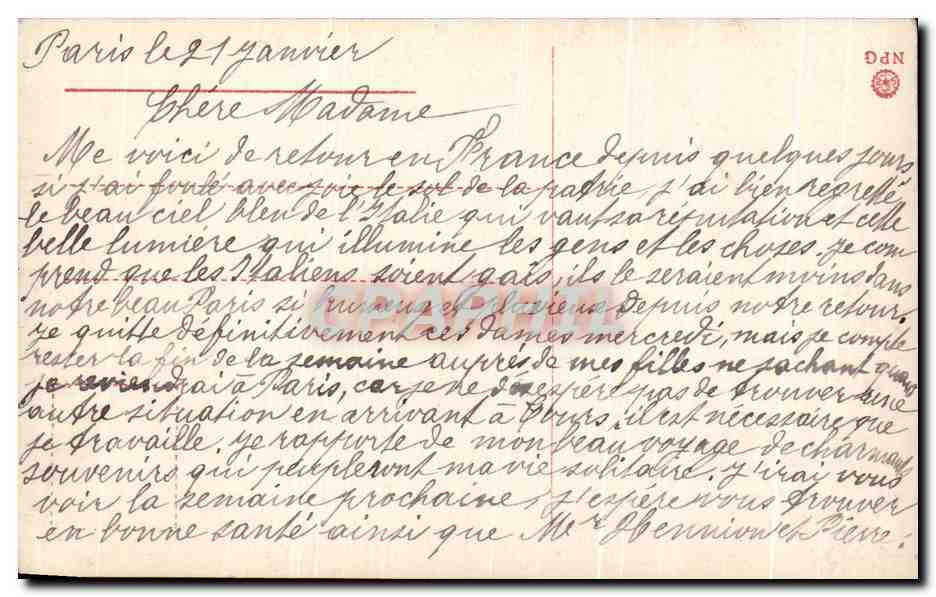 Paris le 21 Janvier
NPG
Chére Madame
Me voici de retour en France depuis quelques jours
si j'ai foulé avec joie le sol de la patrie, j'ai bien regretté
le beau ciel bleu de l'Italie qui vaut sa réputation et cette
belle lumiére qui illumine les gens et les choses. je com
prend que les Italiens soient gais, ils le seraient moins dans
notre beau Paris si brumeux et pluvieux depuis notre retour.
je quitte définitivement ces dames mercredi, mais je compte
rester la fin de la semaine auprés de mes filles ne sachant quand
je reviendrai à Paris, car je ne désespére pas de trouver une
autre situation en arrivant à Tours, il est nécessaire que
je travaille. je rapporte de mon beau voyage de charmants
souvenirs qui peupleront ma vie solitaire. j'irai vous
voir la semaine prochaine, j'espére vous trouver
en bonne santé ainsi que Mr Hennion et Pierre.
CPAPHIL